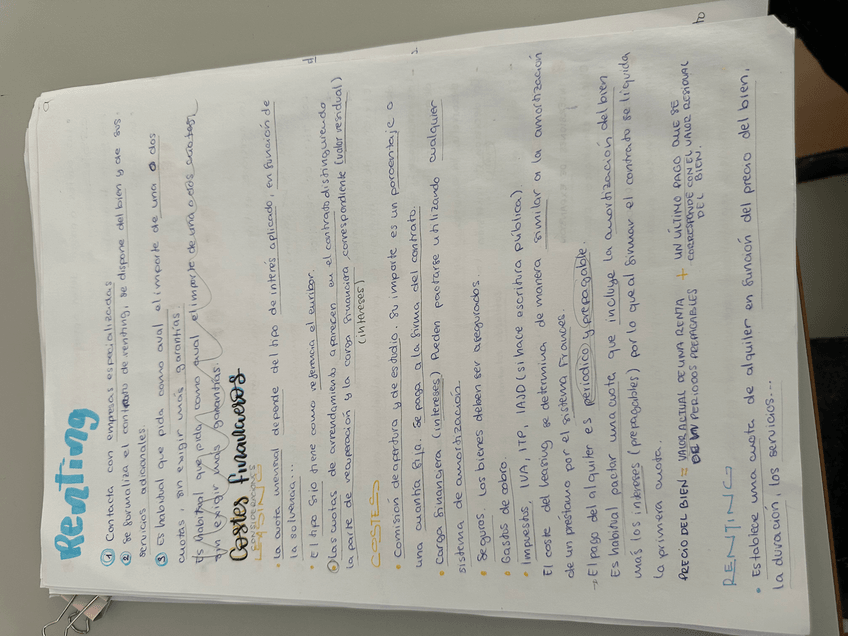 Renting
① Contacta con empresas especializadas
② Se formaliza el contrato de renting, se dispone del bien y de sus
servicios adicionales.
③ Es habitual que pida como aval el importe de una o dos
cuotas, sin exigir más garantías.
Es habitual que pida como aval el importe de una o dos cuotas
sin exigir más garantías.
Costes financieros
CONSIDERACIONES
LEASING
• La cuota mensual depende del tipo de interés aplicado, en función de
la solvencia...
• El tipo fijo tiene como referencia el euribor.
• Las cuotas de arrendamiento aparecen en el contrato distinguiendo
la parte de recuperación y la carga financiera correspondiente (valor residual)
(intereses)
COSTES
• Comisión de apertura y de estudio. Su importe es un porcentaje o
una cuantía fija. Se paga a la firma del contrato.
• Carga financiera (intereses) Pueden pactarse utilizando cualquier
sistema de amortización.
• Seguros. Los bienes deben ser asegurados.
• Gastos de cobro.
• Impuestos. IVA, ITP, IAJD (si hace escritura pública)
El coste del leasing se determina de manera similar a la amortización
de un préstamo por el sistema Francés.
→ El pago del alquiler es periodico y prepagable.
Es habitual pactar una cuota que incluye la amortización del bien
más los intereses (prepagables) por lo que al firmar el contrato se liquida
la primera cuota.
PRECIO DEL BIEN = VALOR ACTUAL DE UNA RENTA + UN ÚLTIMO PAGO QUE SE
DE "n" PERIODOS PREPAGABLES CORRESPONDE CON EL VALOR RESIDUAL
DEL BIEN.
RENTING
• Establece una cuota de alquiler en función del precio del bien,
la duración, los servicios...